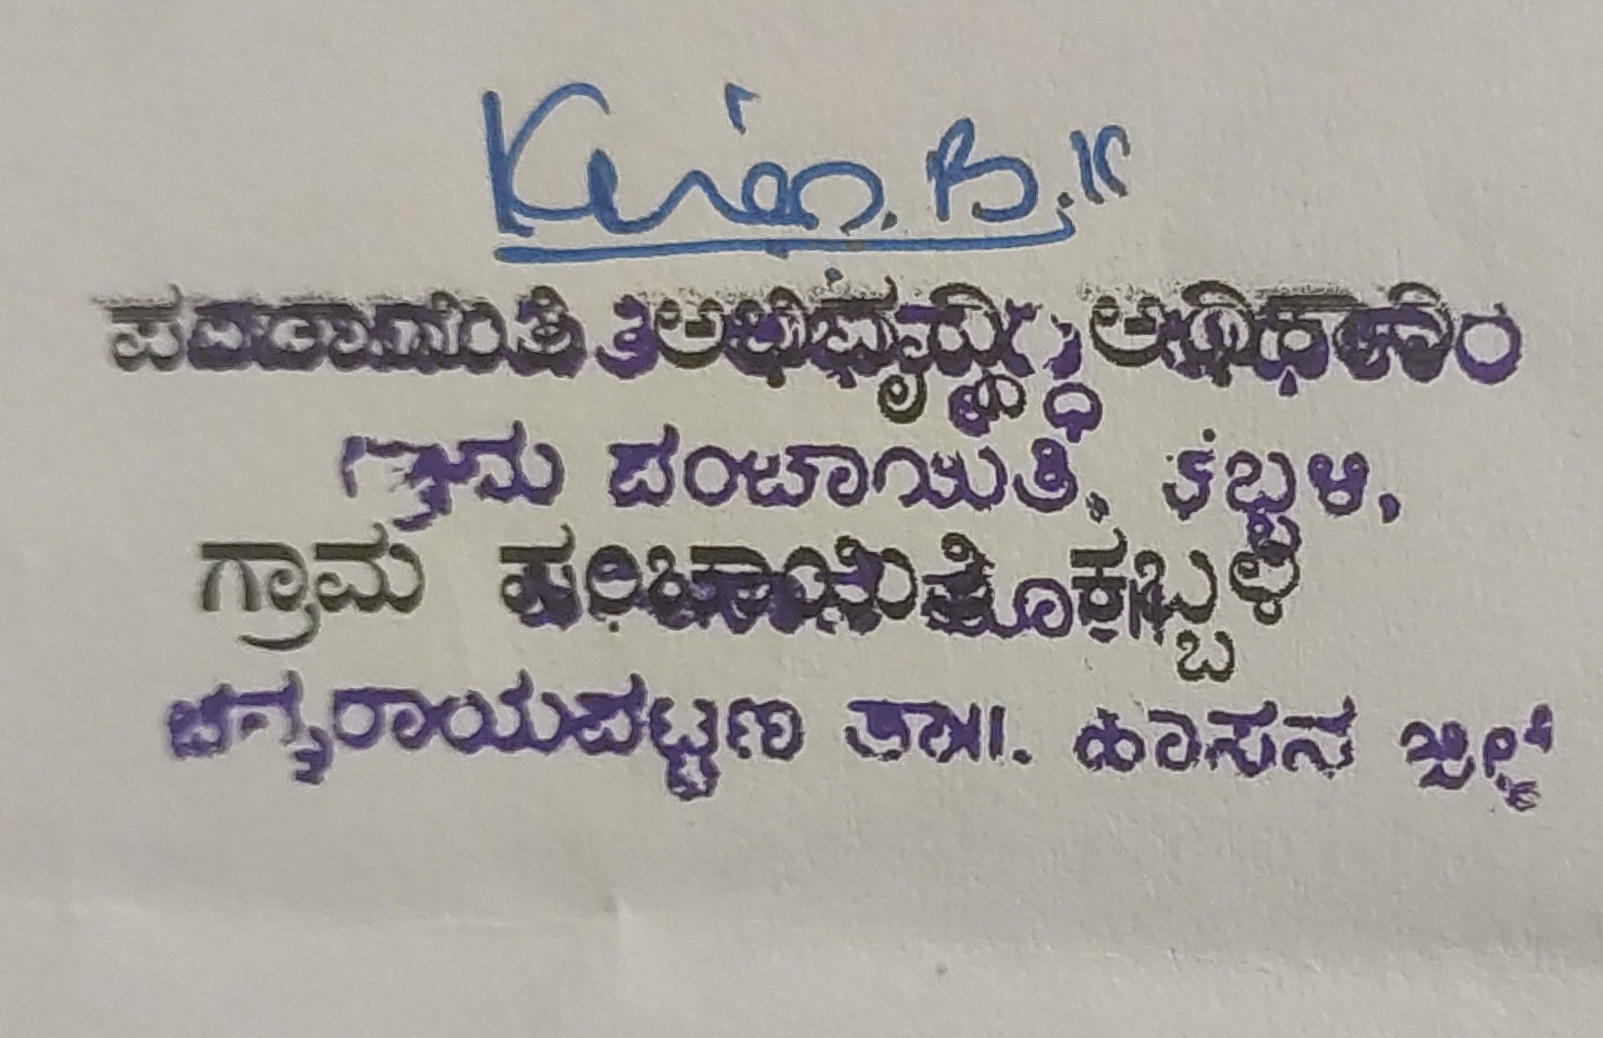 Kiran. B.K
ಪಂಚಾಯಿತಿ ಅಭಿವೃದ್ಧಿ ಅಧಿಕಾರಿ
ಗ್ರಾಮ ಪಂಚಾಯಿತಿ, ಕಬ್ಬಳಿ,
ಗ್ರಾಮ ಪಂಚಾಯಿತಿ ಕಬ್ಬಳಿ
ಚನ್ನರಾಯಪಟ್ಟಣ ತಾ॥. ಹಾಸನ ಜಿಲ್ಲೆ